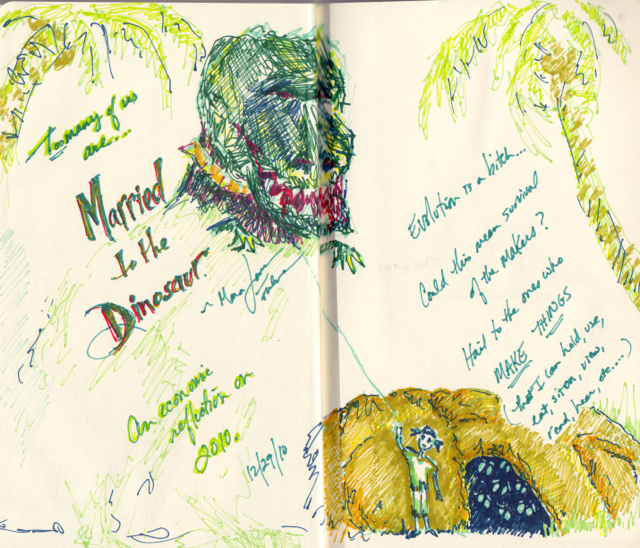 Too many of us
are....
Married
to the
Dinosaur
An economic
reflection on
2010.
12/29/10
Evolution is a bitch...
Could this mean survival
of the makers?
Hail to the ones who
MAKE THINGS
(that I can hold, use,
eat, sit on, view,
read, hear, etc....)